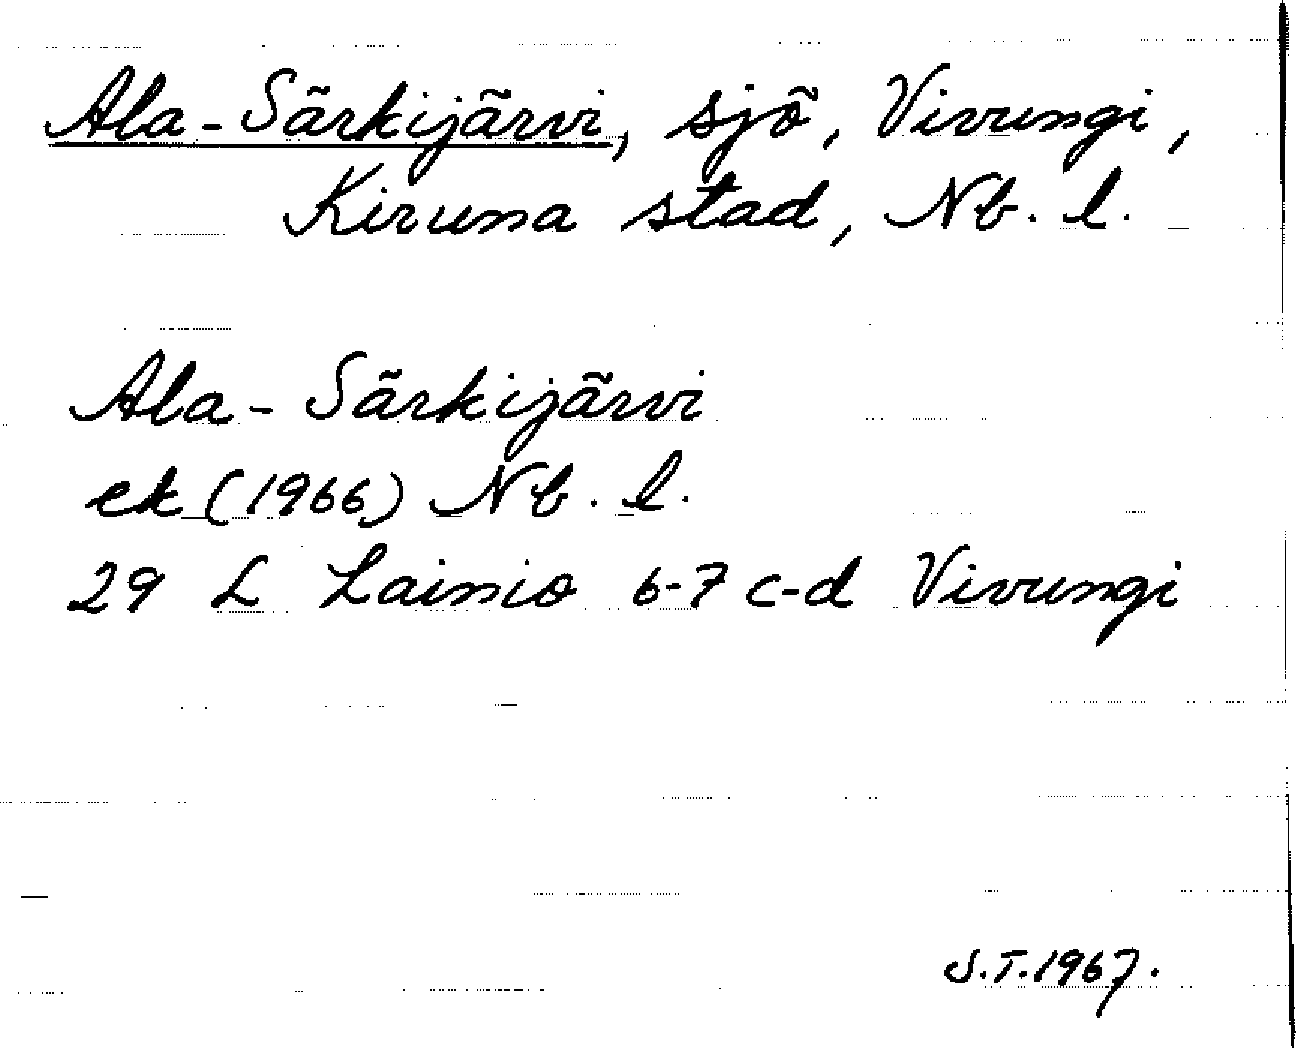 Ala-Särkijärvi, sjö, Vivungi,
Kiruna stad, Nb. l.
Ala-Särkijärvi
ek (1966) Nb. l.
29 L Lainio 6-7 c-d Vivungi
S.T.1967.